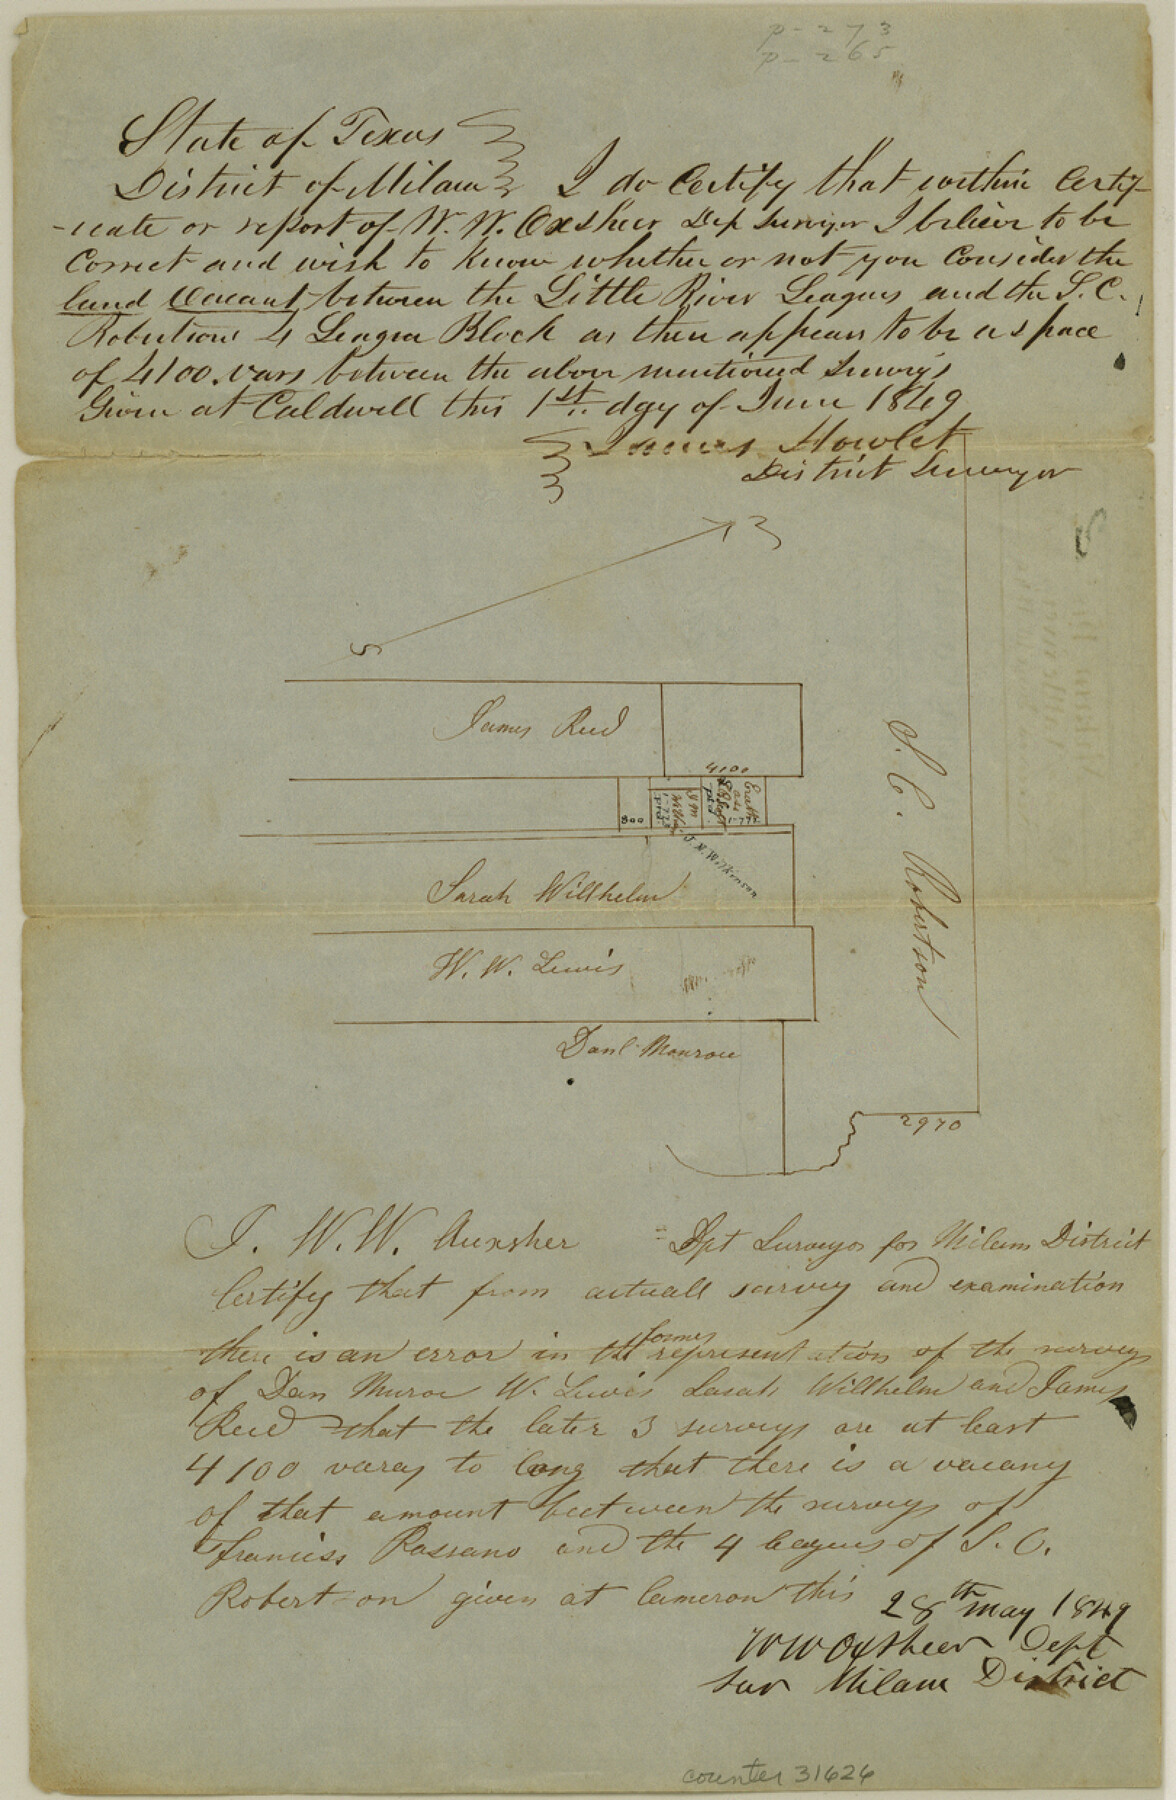 p-273
p-265
State of Texas
District of Milam I do Certify that within Certif-
-icate or report of W. W. Oxsheer Dep Surveyor I believe to be
Correct and wish to Know whether or not you Consider the
land Vacant between the Little River Leagues and the S. C.
Robertsons 4 League Block as then appears to be a space
of 4100. vars between the above mentioned Surveys
Given at Caldwell this 1st. day of June 1849
James Howlet
District Surveyor
S
James Reed
4100
Erath
1-772
J M
Wilk
1-772
800
J. N. Wilkinson
S. C. Robertson
Sarah Willhelm
W. W. Lewis
Danl. Monroe
2970
I. W. W. Auxsher Dpt Surveyor for Milam District
Certify that from actuall survey and examination
former
there is an error in the representation of the surveys
of Dan Muroe W. Lewis Sarah Willhelm and James
Reed that the later 3 surveys are at least
4100 varas to long that there is a vacany
of that amount between the surveys of
Franciss Rassano and the 4 leagues of S. C.
Robert-on given at Cameron this 28th may 1849
W W Oxsheer Dept
Sur Milam District
counter 31626